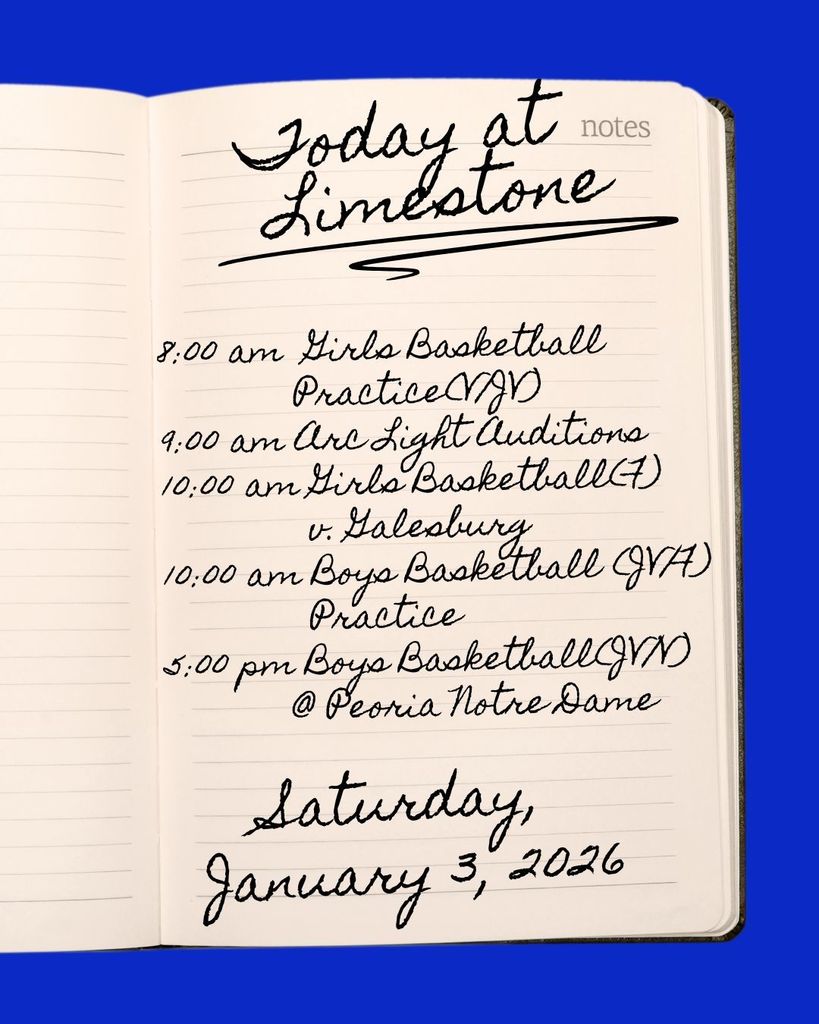 Today at
notes
Limestone
8:00 am Girls Basketball
Practice(V/JV)
9:00 am Arc Light Auditions
10:00 am Girls Basketball(F)
v. Galesburg
10:00 am Boys Basketball (JV/F)
Practice
5:00 pm Boys Basketball(JV/V)
@ Peoria Notre Dame
Saturday,
January 3, 2026